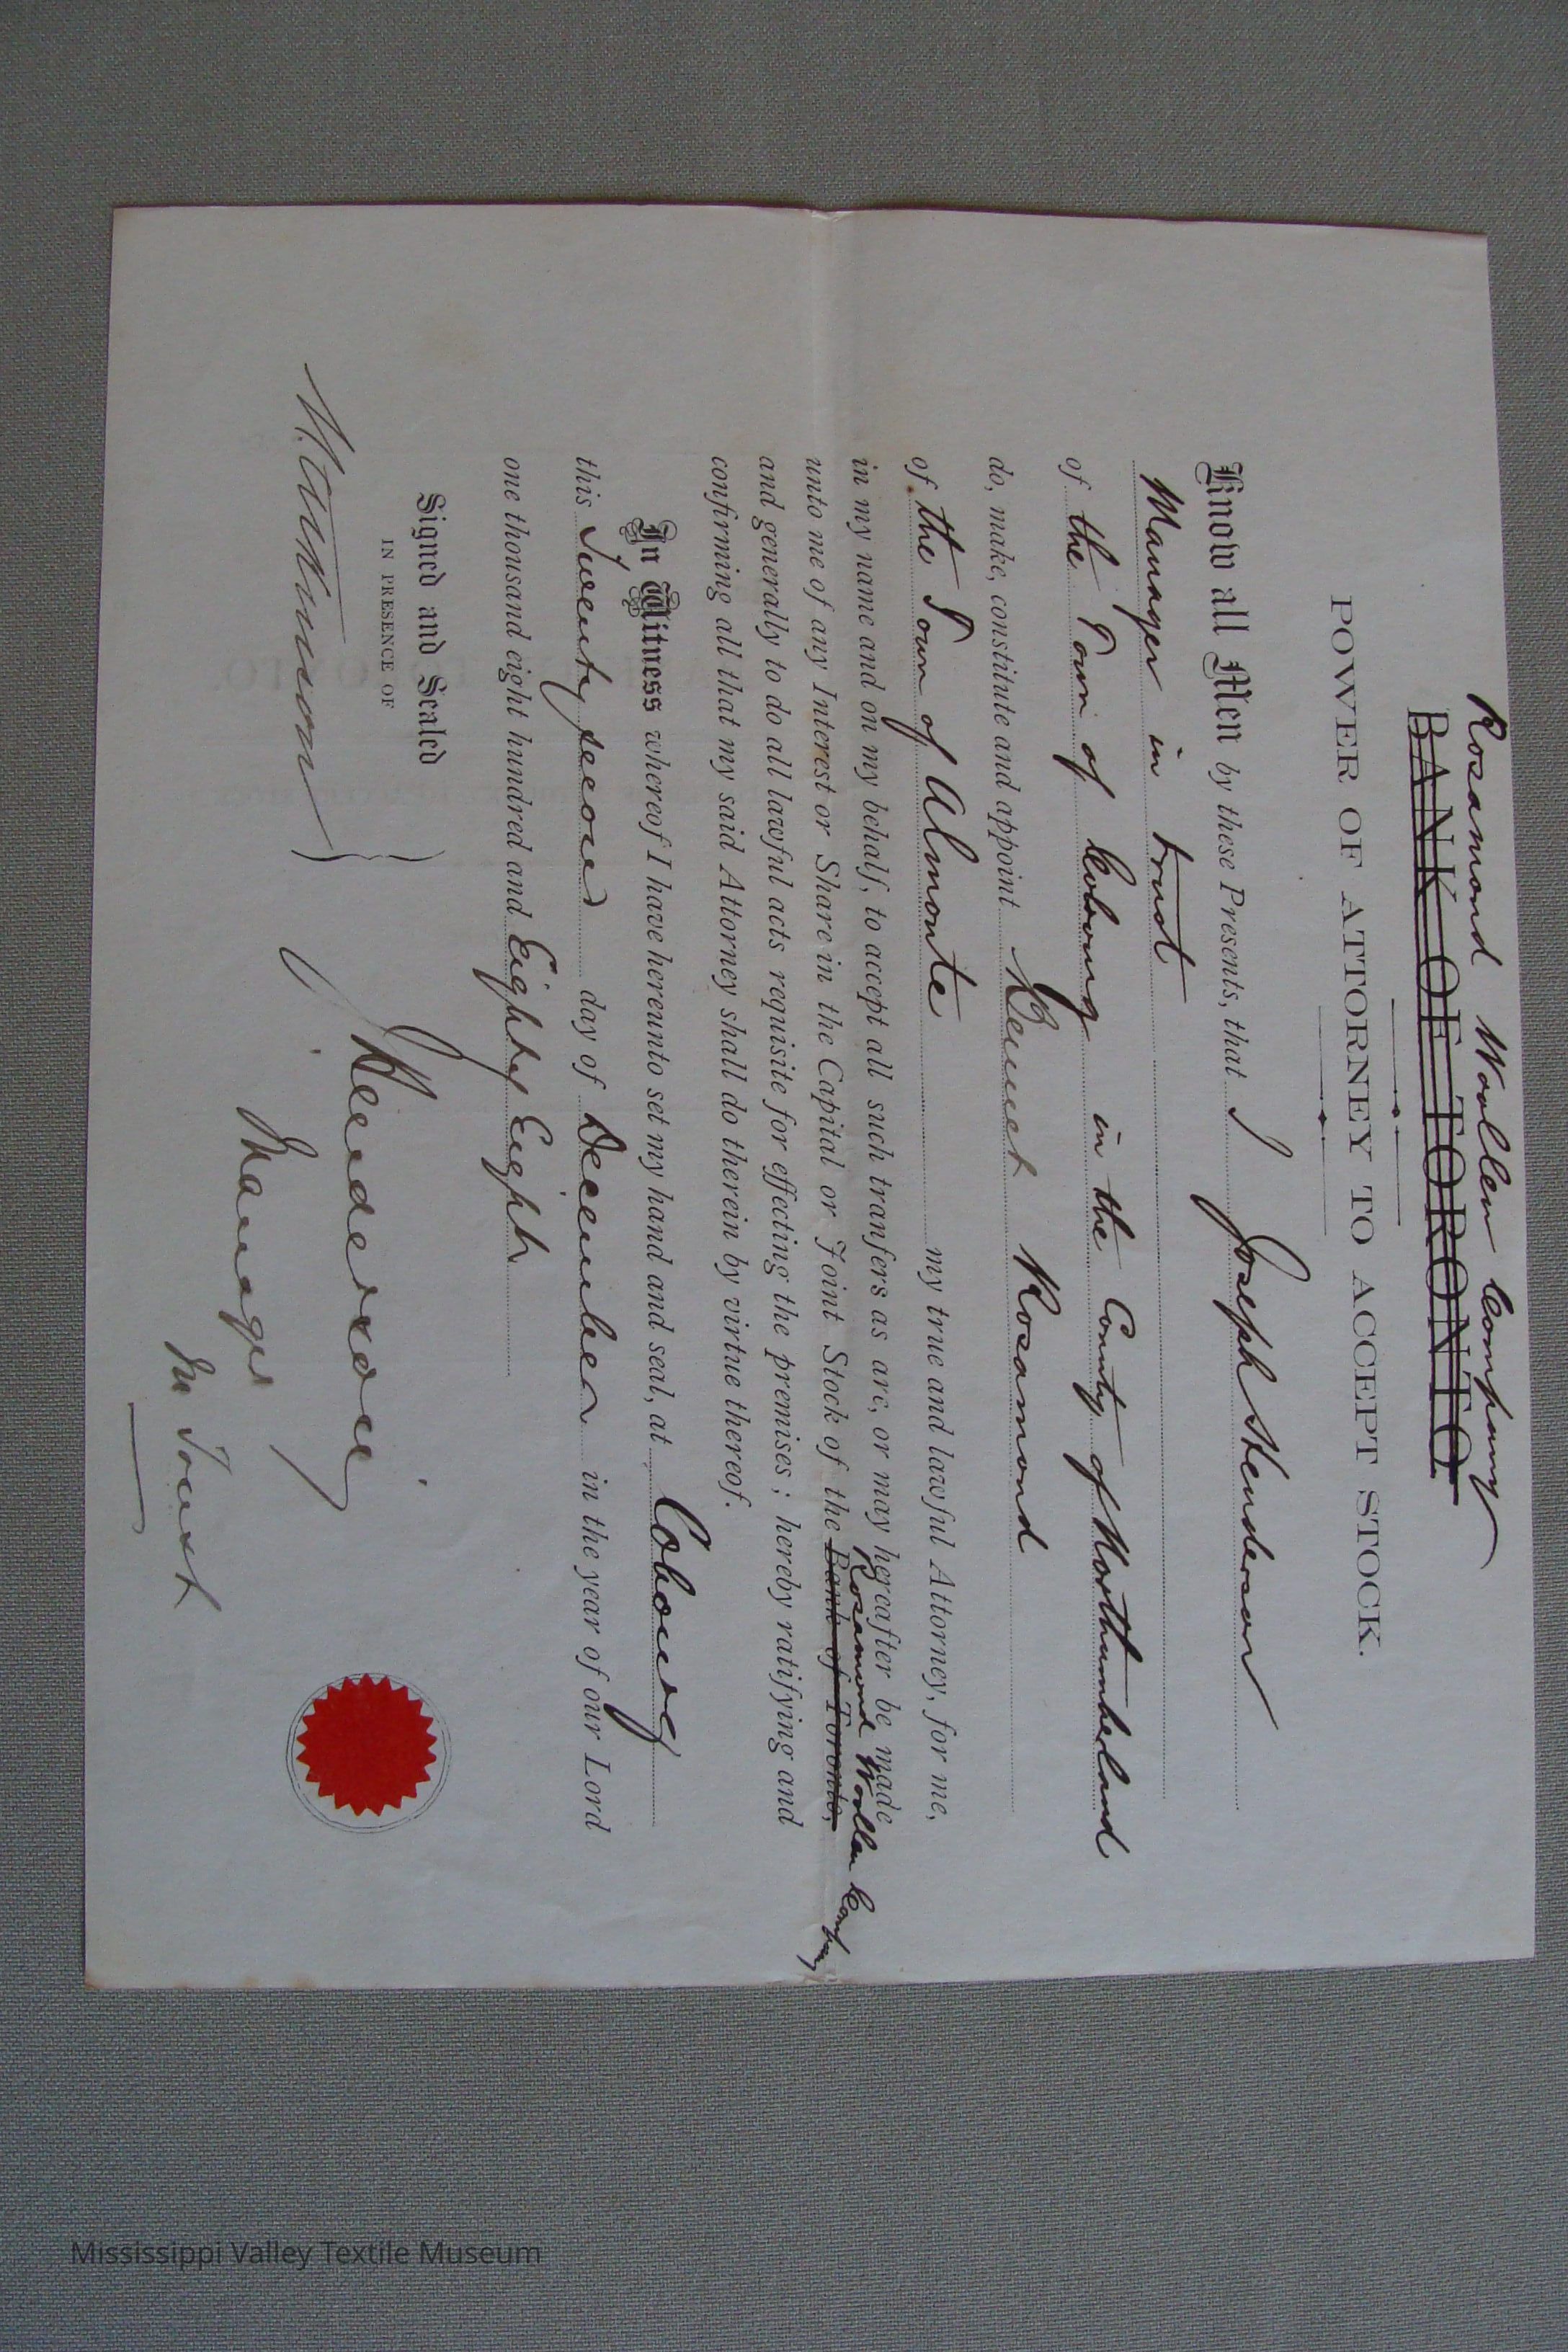 Rosamond Woollen Company
BANK OF TORONTO
POWER OF ATTORNEY TO ACCEPT STOCK.
Know all Men by these Presents, that I Joseph Henderson
Manager in trust
of the Town of Cobourg in the County of Northumberland
do, make, constitute and appoint Bennet Rosamond
of the Town of Almonte my true and lawful Attorney, for me,
in my name and on my behalf, to accept all such transfers as are, or may hereafter be made
Rosamond Woollen Company
unto me of any Interest or Share in the Capital or Joint Stock of the Bank of Toronto,
and generally to do all lawful acts requisite for effecting the premises; hereby ratifying and
confirming all that my said Attorney shall do therein by virtue thereof.
In Witness whereof I have hereunto set my hand and seal, at Cobourg
this Twenty second day of December in the year of our Lord
one thousand eight hundred and Eighty Eight
Signed and Sealed
IN PRESENCE OF
J Henderson
Manager
In Trust
Mississippi Valley Textile Museum